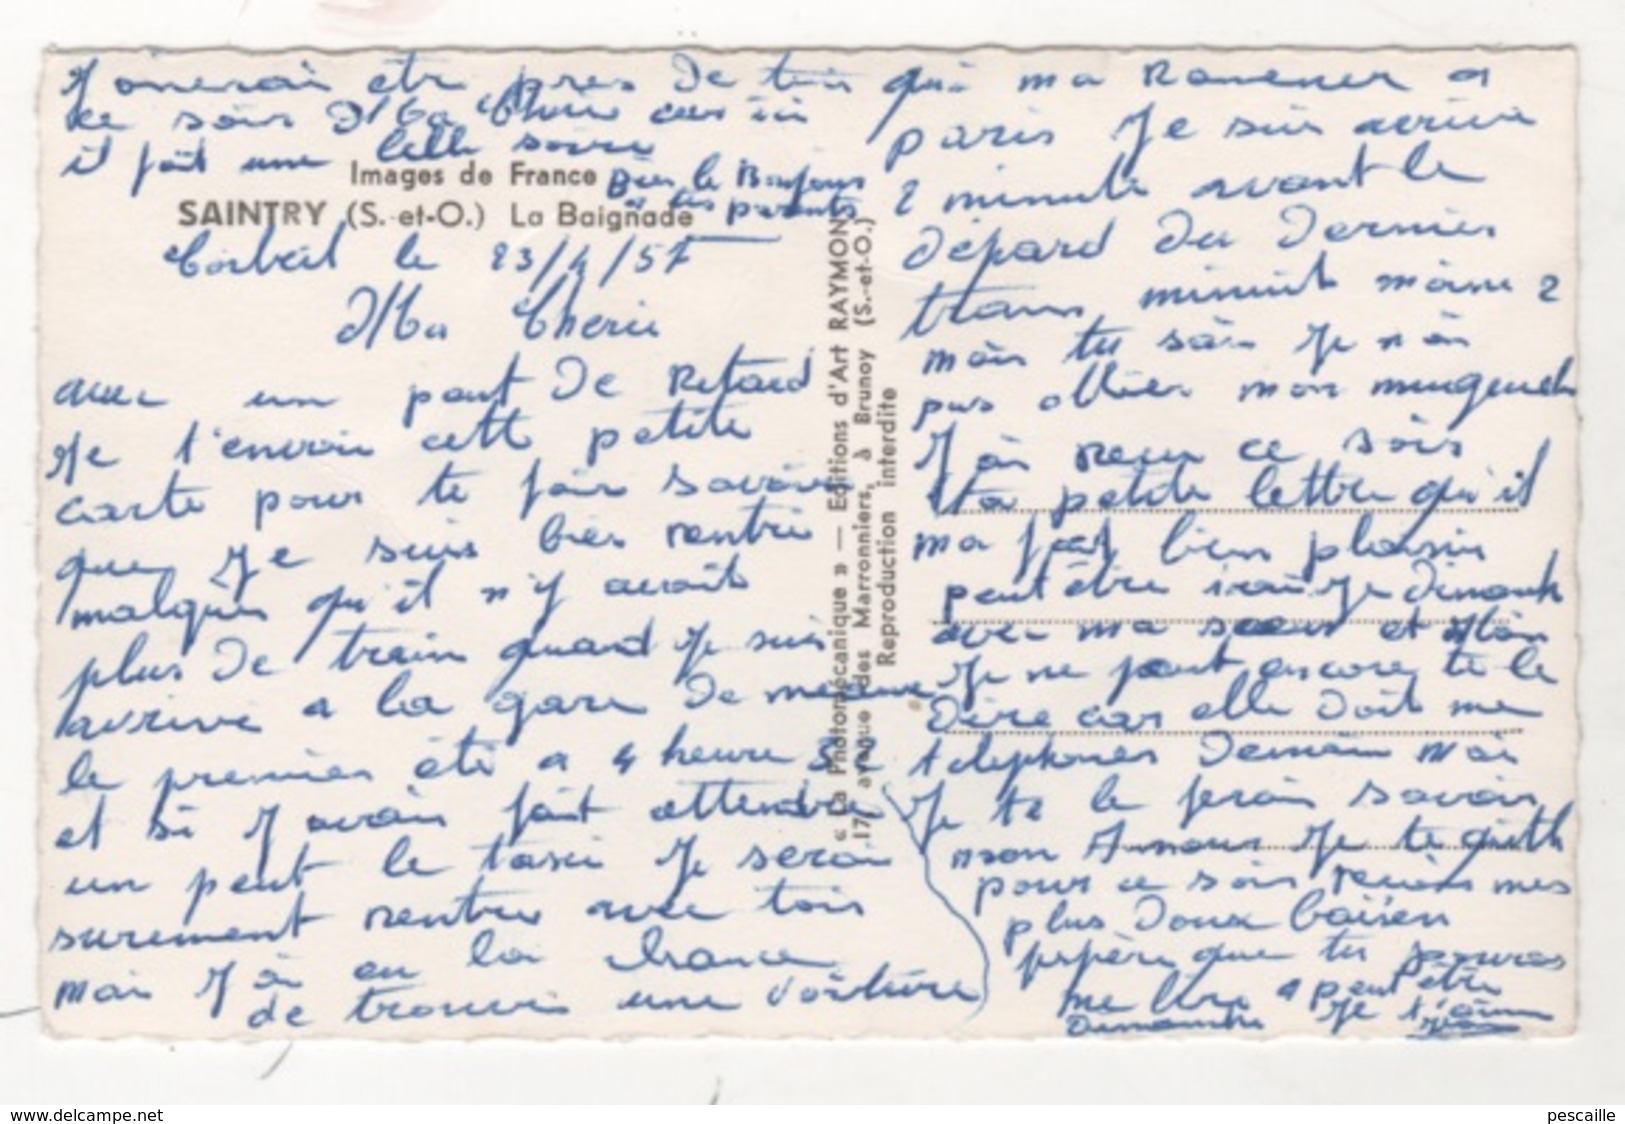 J'omerai etre pres de toi
ce soir Ma Cherie car ici
il fait une belle soire
Bien le Bonjour
a tes parents
Images de France
SAINTRY (S.-et-O.) La Baignade
Corbeil le 23/4/57
Ma Cherie
avec un peut de Retard
Je t'envoie cette petite
carte pour te fair savoir
que Je suis bien rentré
malgrès qu'il n'y avait
plus de train quand Je suis
arrivé a la gare de
le premier été a 4 heure 32
et si J'avais fait attendre
un peut le taxi Je serai
surement rentré avec tois
mai J'ai eu la chance
de trouvé une voiture
« La Photomécanique » — Editions d'Art RAYMON
17, avenue des Marronniers, à Brunoy (S.-et-O.)
Reproduction interdite
qui ma Ramener a
paris Je suis arrivé
2 minute avant le
départ du dernier
trains minuit moins 2
mais tu sais Je n'ai
pas ollier mon
J'ai recu ce soir
ta petite lettre qu'il
ma fait bien plaisir
peut être irai Je Dimanch
avec ma soeur et
Je ne peut encore te le
dire car elle doit me
telephoner demain Mai
Je te le ferai savoir
mon Amour Je te quitte
pour ce soir recois mes
plus doux baisers
J'espère que tu pouras
me lire a peut être
Dimanche Je t'aime
Jean
www.delcampe.net
pescaille